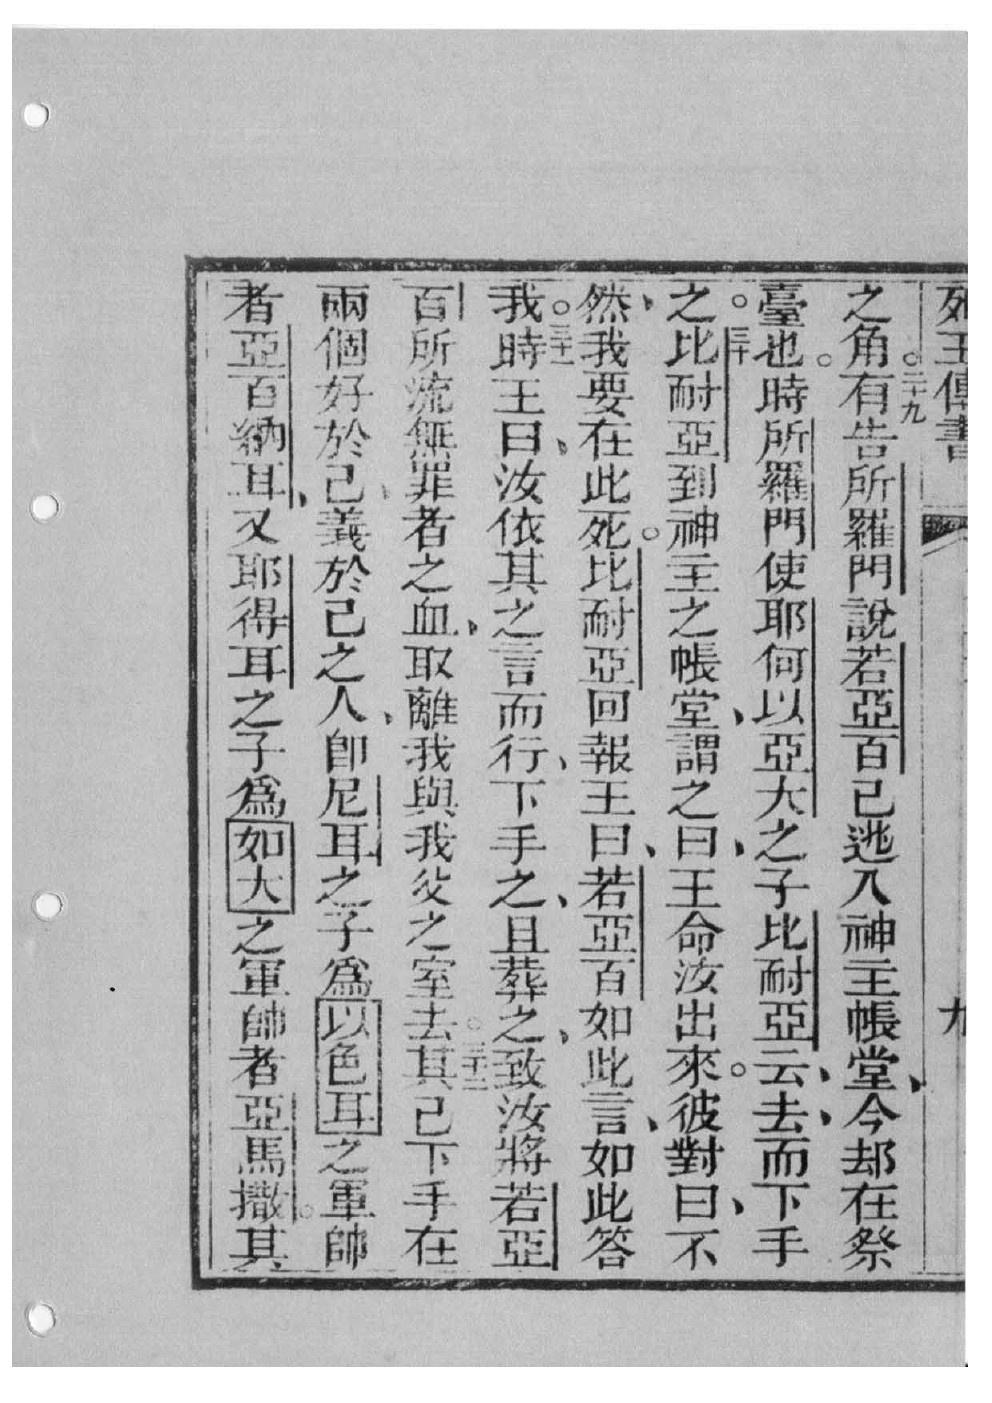 列王傳書 九
之角。二十九有告所羅門說若亞百已逃入神主帳堂、今却在祭
臺也。時所羅門使耶何以亞大之子比耐亞云、去、而下手
之。三十比耐亞到神主之帳堂、謂之曰、王命汝出來。彼對曰、不
然、我要在此死。比耐亞回報王曰、若亞百如此言、如此答
我。三十一時王曰、汝依其之言而行、下手之、且葬之、致汝將若亞
百所流無罪者之血、取離我與我父之室去。三十二其已下手在
兩個好於己、義於己之人、卽尼耳之子爲以色耳之軍帥
者亞百納耳、又耶得耳之子爲如大之軍帥者亞馬撒。其